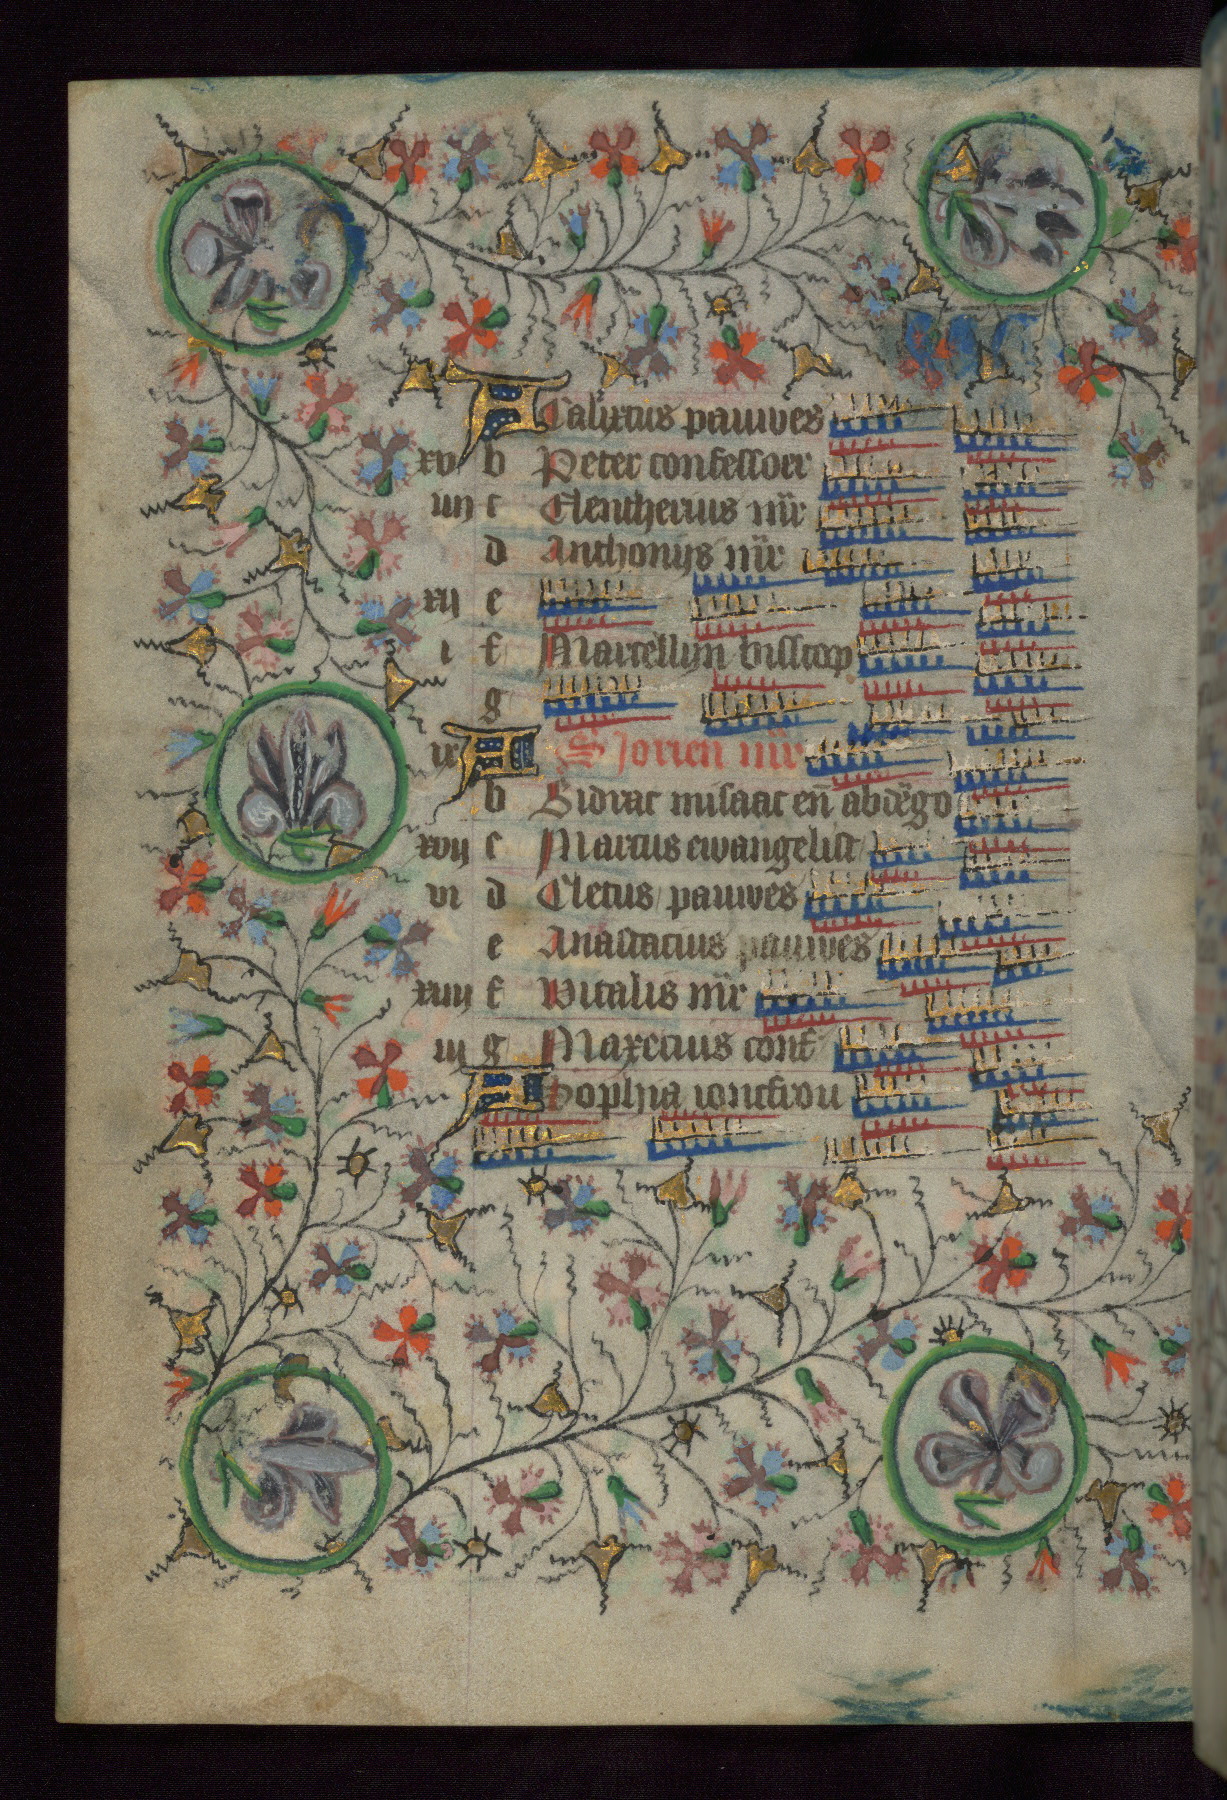 A Calixtus pauwes
xv b Peter confessoer
iiij c Eleutherius m̄r
d Anthonijs m̄r
xij e
i f Marcellijn bisscop
g
ix A S Jorien m̄r
b Sidrac misaac en̄ abdego
xvij c Marcus ewangelist
vi d Cletus pauwes
e Anastacius pauwes
xiiij f Vitalis m̄r
iij g Maxecius conf
A Sophia ioncfrou